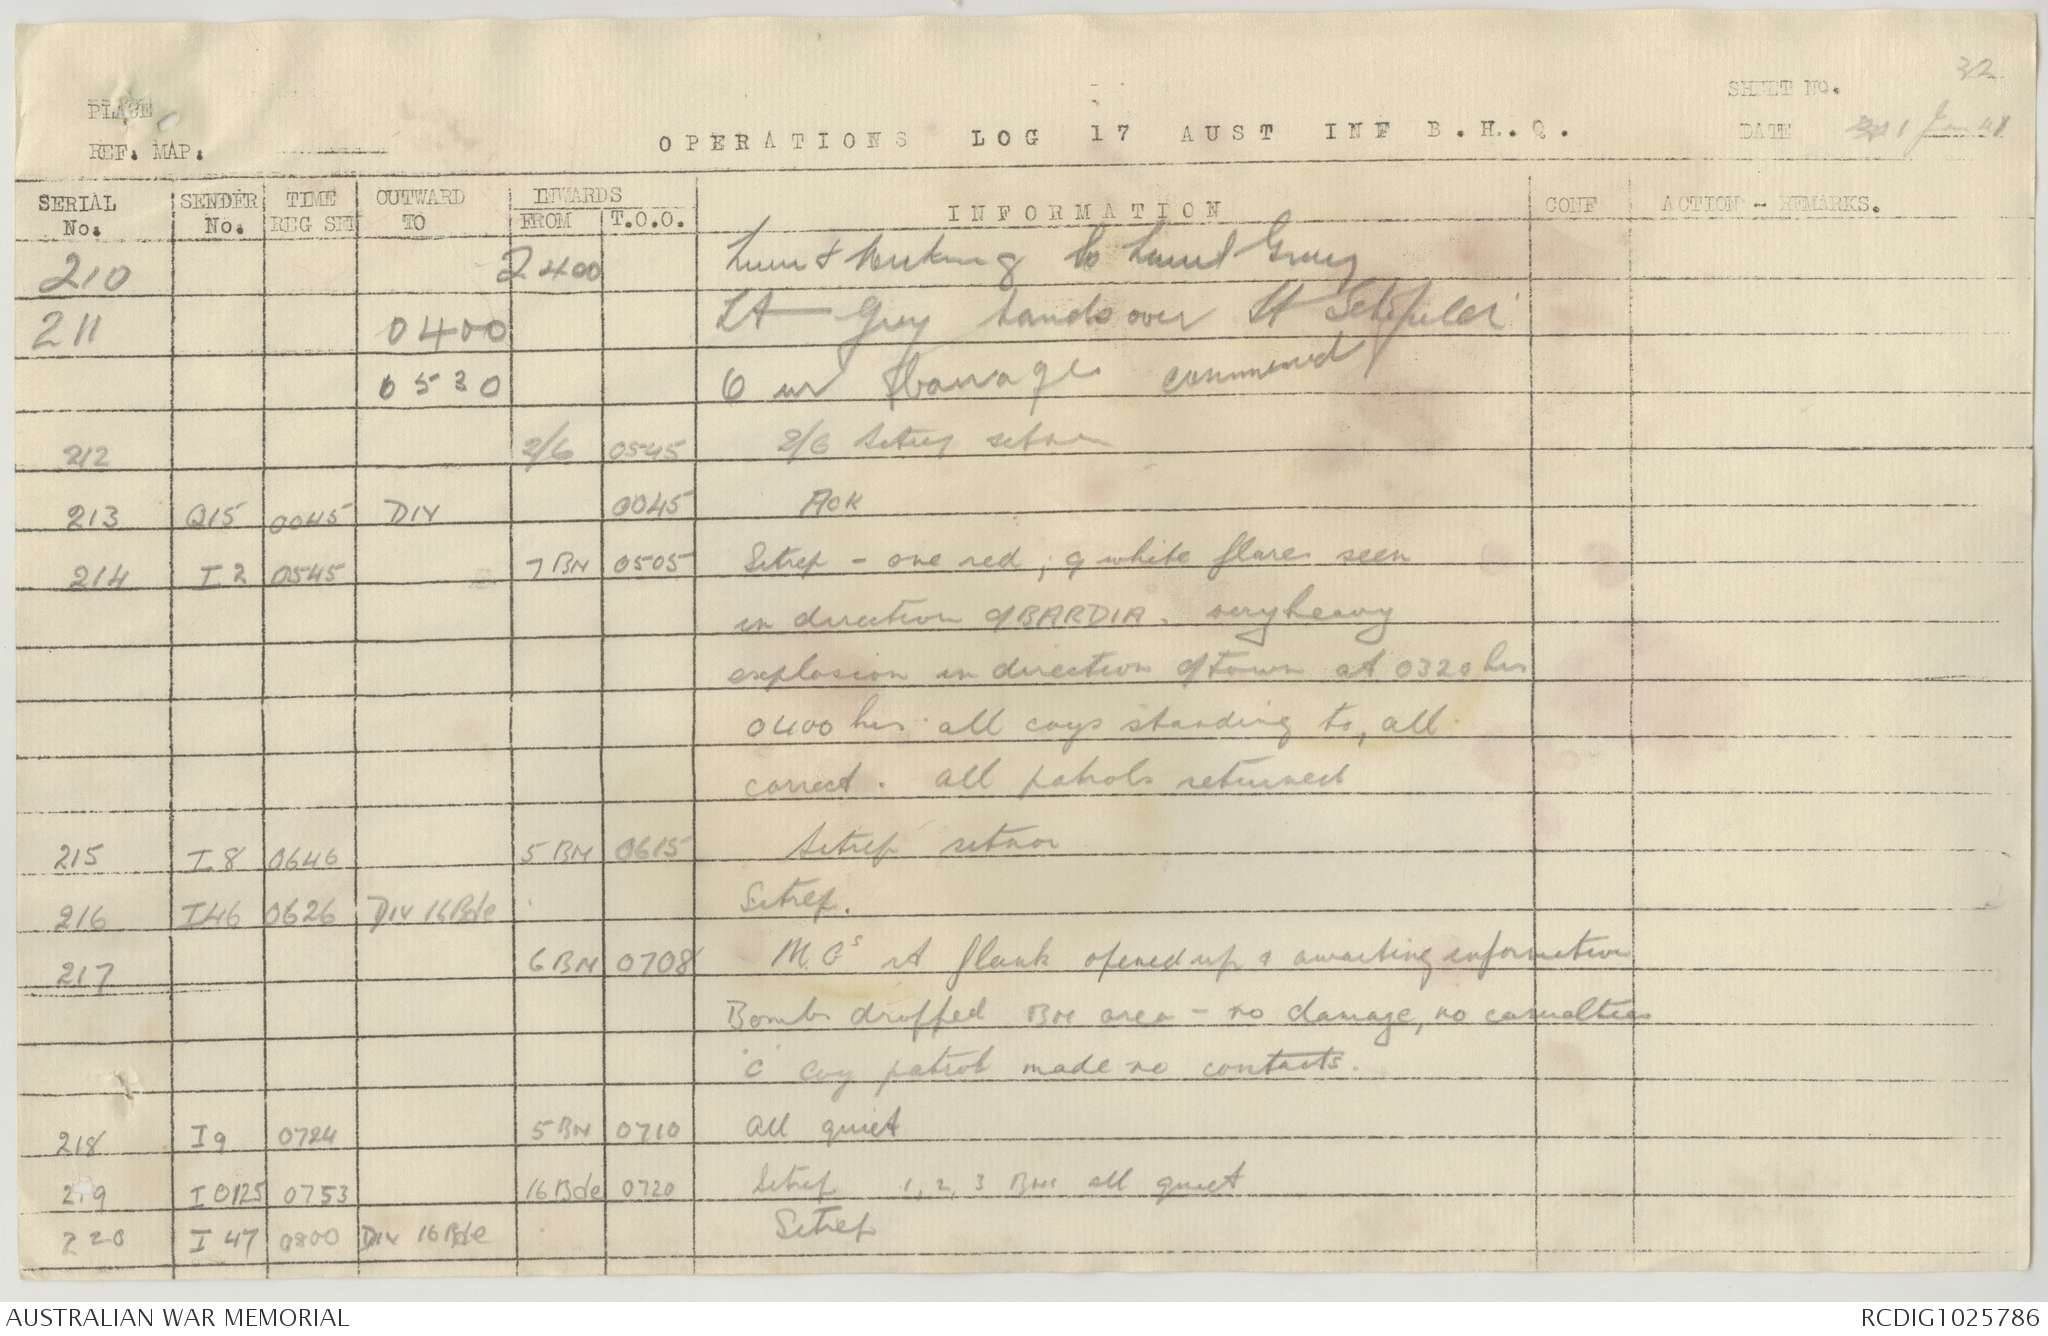 32
SHEET NO.
PLACE
DATE 1 Jan 41
REF. MAP.
OPERATIONS LOG 17 AUST INF B.H.Q.
SERIAL No. SENDER No. TIME REG SET OUTWARD TO INWARDS FROM T.O.O. INFORMATION CONF ACTION - REMARKS.
210 2400 to Lieut
211 0400 Lt Grey hands over Lt
0530 Barrage commenced
212 2/6 0545 2/6 Sitrep sitnor
213 Q15 0045 DIV 0045 AOK
214 I 2 0545 7 BN 0505 Sitrep - one red, 9 white flares seen
in direction of BARDIA. very heavy
explosion in direction of Town at 0320 hrs
0400 hrs all coys standing to, all
correct. All patrols returned
215 I.8 0646 5 BN 0615 Sitrep sitnor
216 I46 0626 Div 16 Bde Sitrep.
217 6 BN 0708 M.Gs rt flank opened up & awaiting information
Bombs dropped BN area - no damage, no casualties
'C' Coy patrol made no contacts.
218 I9 0724 5 BN 0710 All quiet
219 I 0125 0753 16 Bde 0720 Sitrep 1, 2, 3 BNs all quiet
220 I 47 0800 Div 16 Bde Sitrep
AUSTRALIAN WAR MEMORIAL
RCDIG1025786